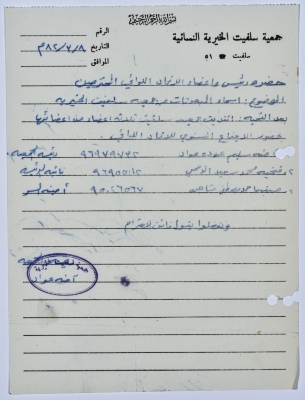 بسم الله الرحمن الرحيم
جمعية سلفيت الخيرية النسائية
سلفيت ☎ ٥١
الرقم
التاريخ ٨٢/٧/٨م
الموافق
حضرة رئيس واعضاء الاتحاد اللوائي المحترمين
الموضوع: اسماء المندوبات عن جمعية سلفيت الخيرية
بعد التحية: انتدبت جمعية سلفيت ثلاثة اعضاء من اعضائها
حضور الاجتماع السنوي للاتحاد اللوائي.
آمنه سليم عوده عواد ٩٦٩٧٩٧٤٢ رئيسة الجمعية
فتحيه محمد سعيد ٩٦٩٥٥٠١٢ نائبة الرئيسة
مصطفى شاهين ٩٥٠٢٦٥٦٧ أمينة السر
وتفضلوا بقبول فائق الاحترام
جمعية سلفيت الخيرية
آمنه عواد